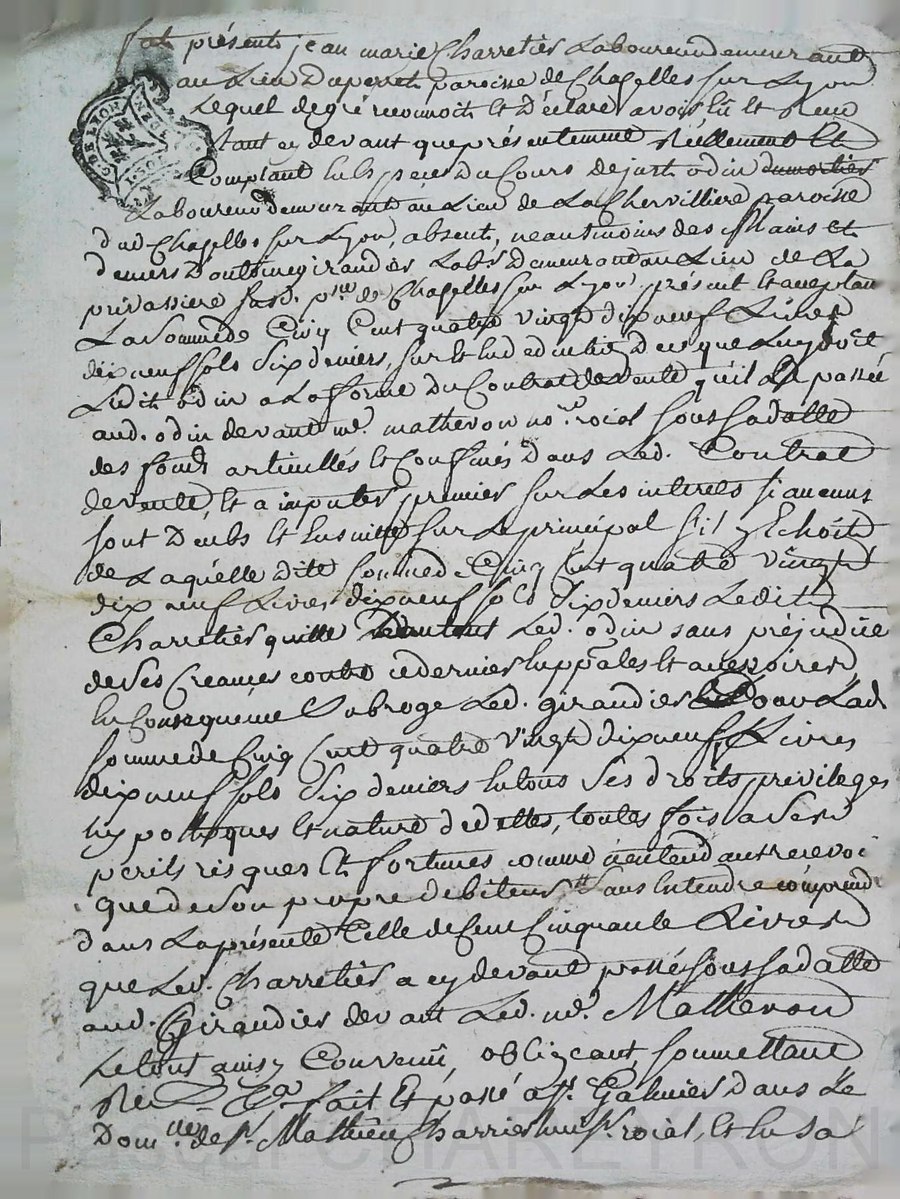 fut présent jean marie Charretier Laboureur demeurant
au Lieu Duperet paroisse de Chapelles sur Lyon
Lequel de gré reconnoit et déclare avoir eu et Receu
tant cy devant que présentement Réellement et
Comptant en Espèces Du Cours de just odin dumortier
Laboureur demeurant au Lieu de La Chervilliere paroisse
dud. Chapelles sur Lyon, absent, neantmoins des Mains et
deniers D'antoine girandier Labr. Demeurant au Lieu de La
privassiere susd. psse de Chapelles sur Lyon présent et aceptant
La Somme de Cinq Cent quatre vingt dix neuf Livres
dix neuf sols dix deniers, sur et en déduction de ce que Luy doit
Ledit odin a La forme du Contrat de vente qu'il a passée
aud. odin devant me. matheron nore. roial sous sa datte
des fonds articullés et Confinés Dans Led. Contrat
de vente, et a imputer premier sur Les interets si aucuns
sont Deubs et Ensuitte sur Le principal s'il y Echoit
de Laquelle dite somme de Cinq Cent quatre vingt
dix neuf Livres dix neuf sols dix deniers Ledit
Charretier quitte Led. odin sans préjudice
de Ses Creances contre ce dernier supples et accessoires
En Consequence Subroge Led. girandier pour Lad.
somme de Cinq Cent quatre vingt dix neuf Livres
dix neuf sols Dix deniers En tous Ses droits privileges
hypotheques et nature de dettes, toutes fois a Ses
perils risques et fortunes comme n'entendant recevoir
que de son propre debiteur Sans Entendre comprendre
dans La présente Celle de Cent Cinquante Livres
que Led. Charretier a cy devant passé sous sa datte
aud. Girandier devant Led. me. Matheron
Le tout ainsy Convenu, obligeant, soumettant
Re Ca fait et passé a st. Galmier Dans Le
Domlle de sr. Mathieu Charrier roial, et En sa
Pascal CHAREYRON